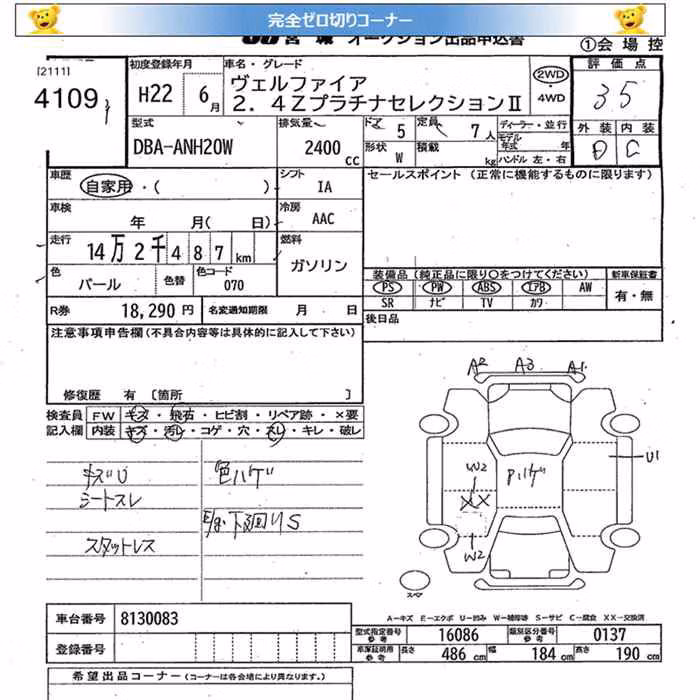 完全ゼロ切りコーナー
宮城 オークション出品申込書
①会場控
[2111]
4109
初度登録年月
H22 6月
車名・グレード
ヴェルファイア
2.4Zプラチナセレクションⅱ
2WD
4WD
評価点
3.5
外装 内装
D C
型式
DBA-ANH20W
排気量
2400 cc
ドア 5
形状 W
定員 7人
積載 kg
ディーラー・並行
モデル年式
ハンドル 左・右
車歴
自家用・( )
シフト
IA
セールスポイント (正常に機能するものに限ります)
車検
年 月(日)
冷房
AAC
走行
14万2千487km
燃料
ガソリン
色
パール
色替
色コード
070
装備品(純正品に限り○をつけてください)
PS PW ABS エアB AW
SR ナビ TV カワ
新車保証書
有・無
R券 18,290円
名変通知期限 月 日
後日品
注意事項申告欄(不具合内容等は具体的に記入して下さい)
修復歴 有 [箇所 ]
検査員 FW キズ・飛石・ヒビ割・リペア跡・×要
記入欄 内装 キズ・汚レ・コゲ・穴・スレ・キレ・破レ
キズU
シートスレ
スタットレス
色ハゲ
下廻りS
A2 A3 A1
U1
W2
XX
Pハゲ
W2
スペア
A-キズ E-エクボ U-凹み W-補修跡 S-サビ C-腐食 XX-交換済
車台番号 8130083
登録番号
型式指定番号 参考 16086
類別区分番号 参考 0137
車庫証明用 参考 長さ 486cm 幅 184cm 高さ 190cm
希望出品コーナー(コーナーは各会場により異なります。)